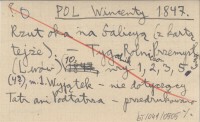 POL Wincenty 1847.
Rzut oka na Galicyę (z karty
tejże). — Tyg. Rolni. Przemysł.
(Lwów) 10, 1, 2, 3, 5
(47), m.i. Wyjątek — nie dotyczący
Tatr ani Podtatrza — przedrukowa